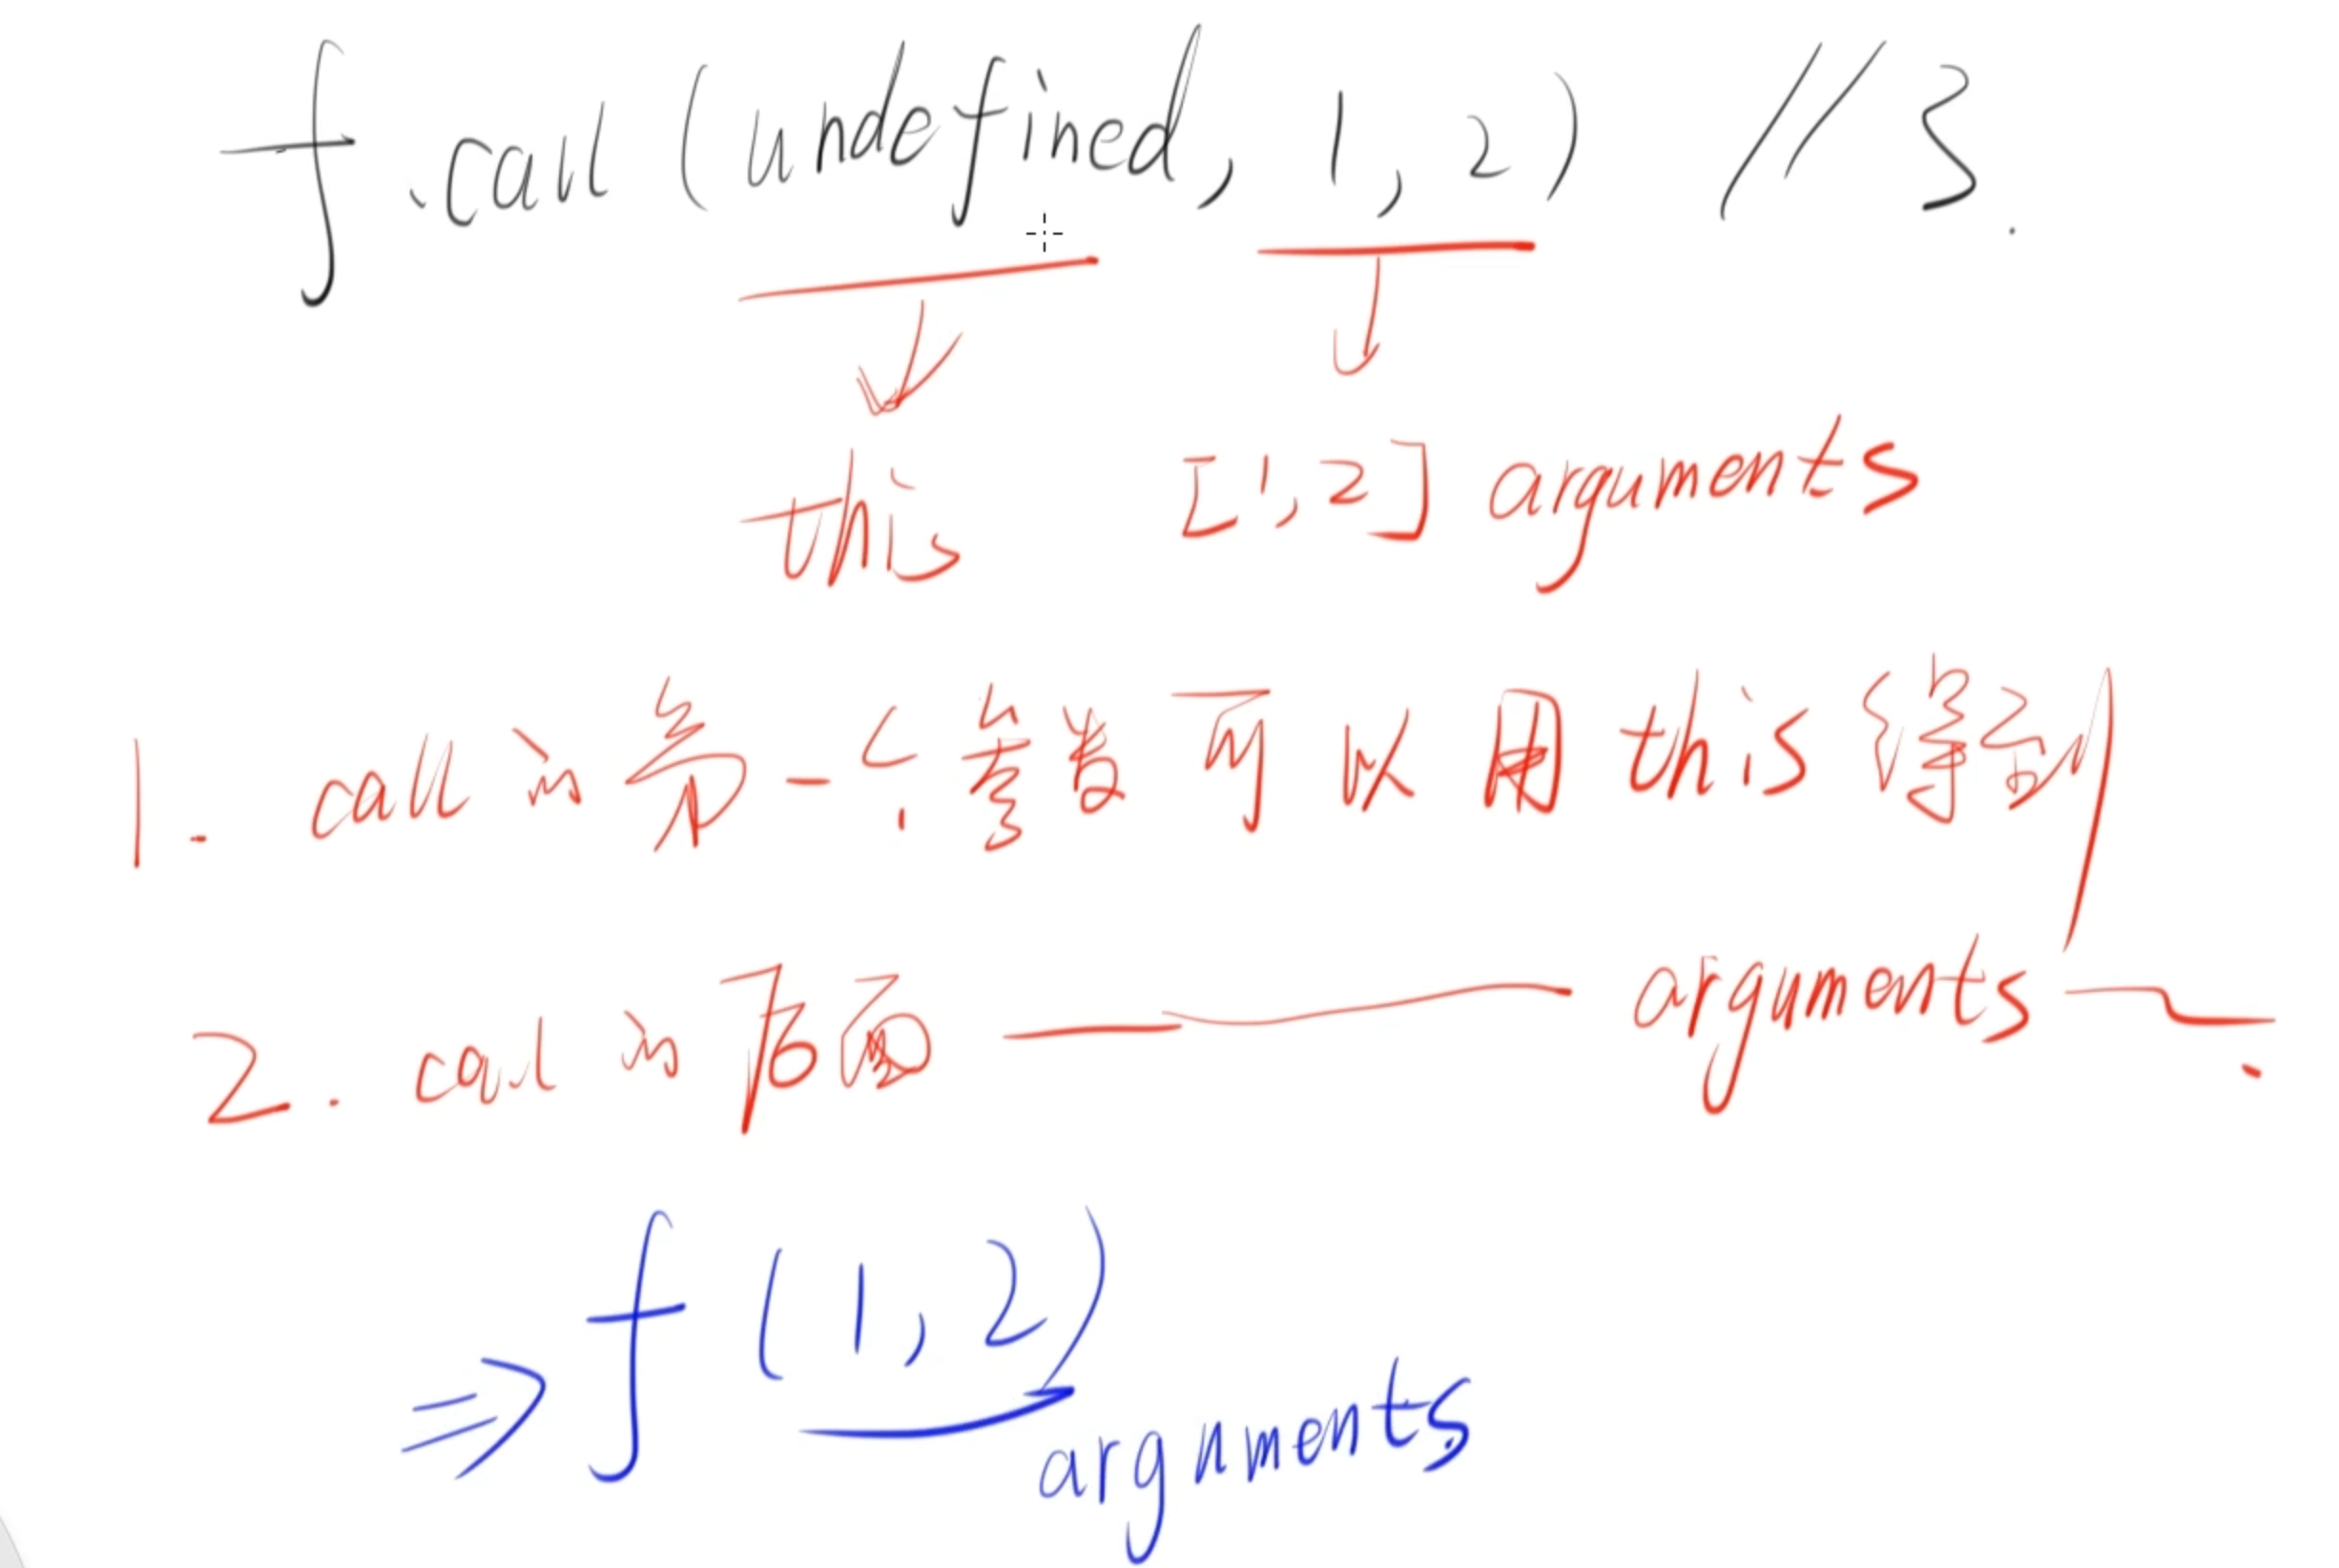 f.call(undefined, 1, 2) // 3.
this [1,2] arguments
1. call 的第一个参数可以用 this 得到
2. call 的后面 —— arguments —— .
⇒ f(1,2)
arguments